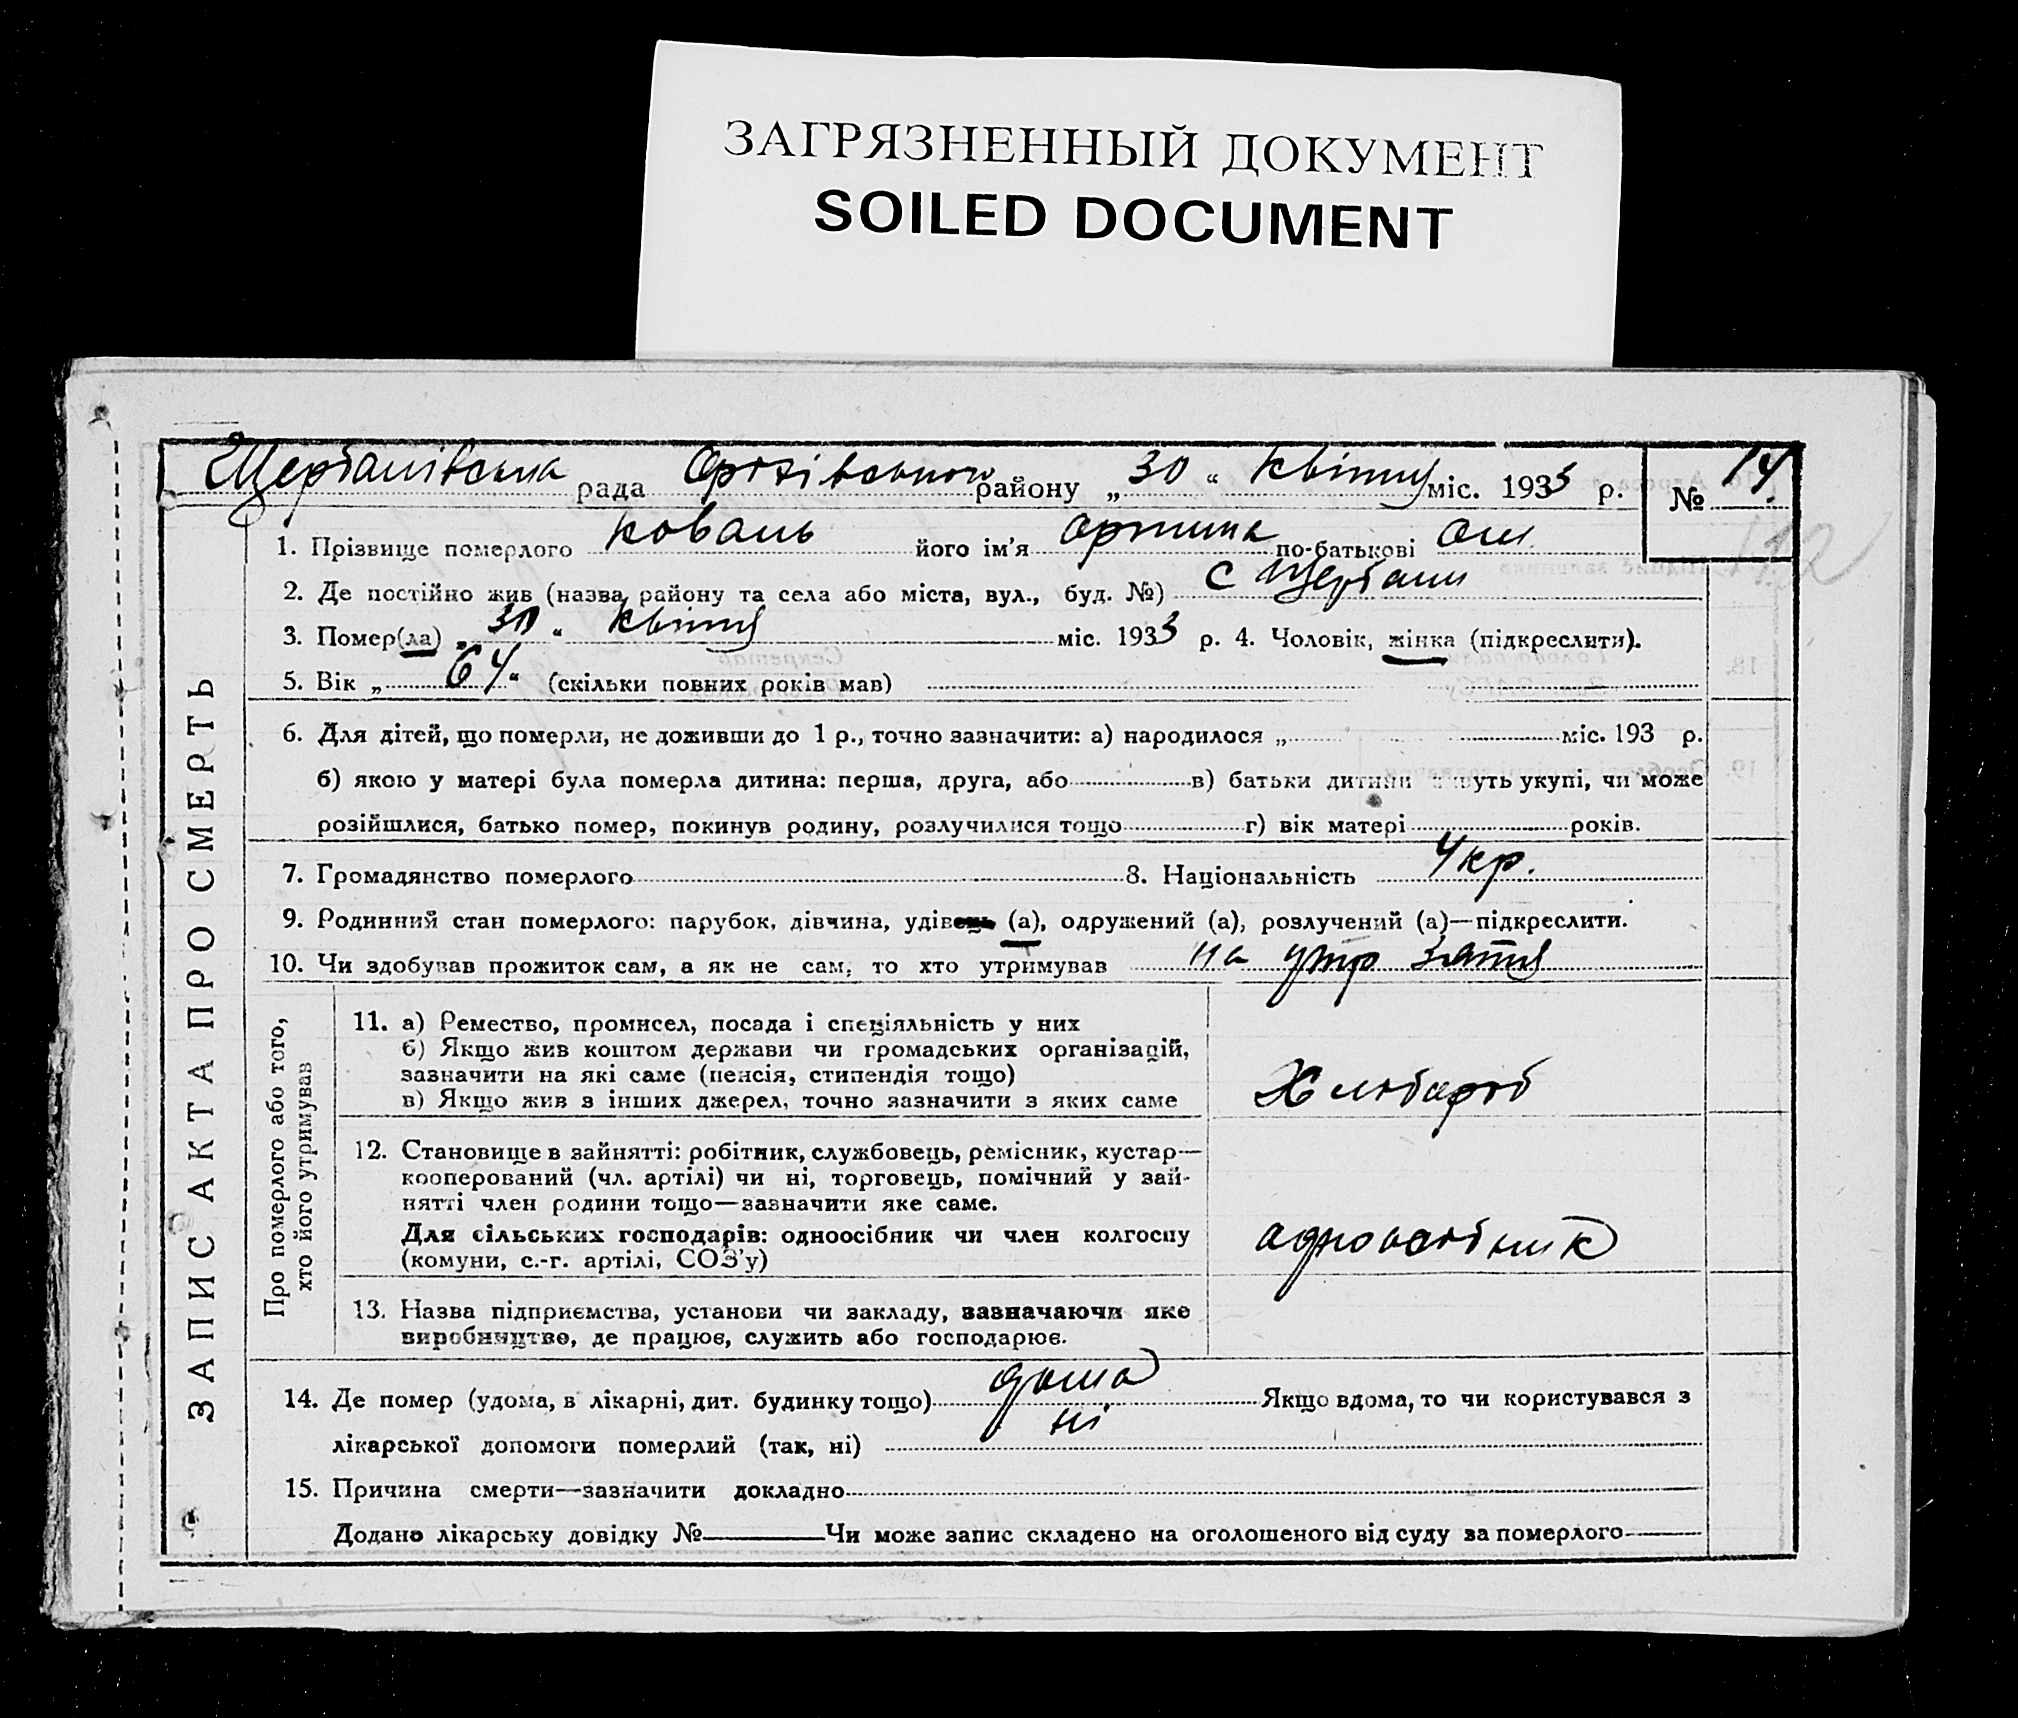 ЗАГРЯЗНЕННЫЙ ДОКУМЕНТ
SOILED DOCUMENT
рада району „30“ квітня міс. 1933 р. № 14.
1. Прізвище померлого Коваль його ім'я по-батькові
2. Де постійно жив (назва району та села або міста, вул., буд. №) с Щербани
3. Помер(ла) „30“ квітня міс. 1933 р. 4. Чоловік, жінка (підкреслити).
5. Вік „64“ (скільки повних років мав)
6. Для дітей, що померли, не доживши до 1 р., точно зазначити: а) народилося „ міс. 193 р.
б) якою у матері була померла дитина: перша, друга, або в) батьки дитини живуть укупі, чи може
розійшлися, батько помер, покинув родину, розлучилися тощо г) вік матері років.
7. Громадянство померлого 8. Національність Укр.
9. Родинний стан померлого: парубок, дівчина, удівець (а), одружений (а), розлучений (а)—підкреслити.
10. Чи здобував прожиток сам, а як не сам, то хто утримував на утр зятя
ЗАПИС АКТА ПРО СМЕРТЬ
Про померлого або того,
хто його утримував
11. а) Ремество, промисел, посада і спеціяльність у них
б) Якщо жив коштом держави чи громадських організацій,
зазначити на які саме (пенсія, стипендія тощо)
в) Якщо жив з інших джерел, точно зазначити з яких саме
Хлібороб
12. Становище в зайнятті: робітник, службовець, ремісник, кустар—
кооперований (чл. артілі) чи ні, торговець, помічний у зай-
нятті член родини тощо—зазначити яке саме.
Для сільських господарів: одноосібник чи член колгоспу
(комуни, с.-г. артілі, СОЗ'у)
одноосібник
13. Назва підприємства, установи чи закладу, зазначаючи яке
виробництво, де працює, служить або господарює.
14. Де помер (удома, в лікарні, дит. будинку тощо) дома Якщо вдома, то чи користувався з
лікарської допомоги померлий (так, ні) ні
15. Причина смерти—зазначити докладно
Додано лікарську довідку № Чи може запис складено на оголошеного від суду за померлого